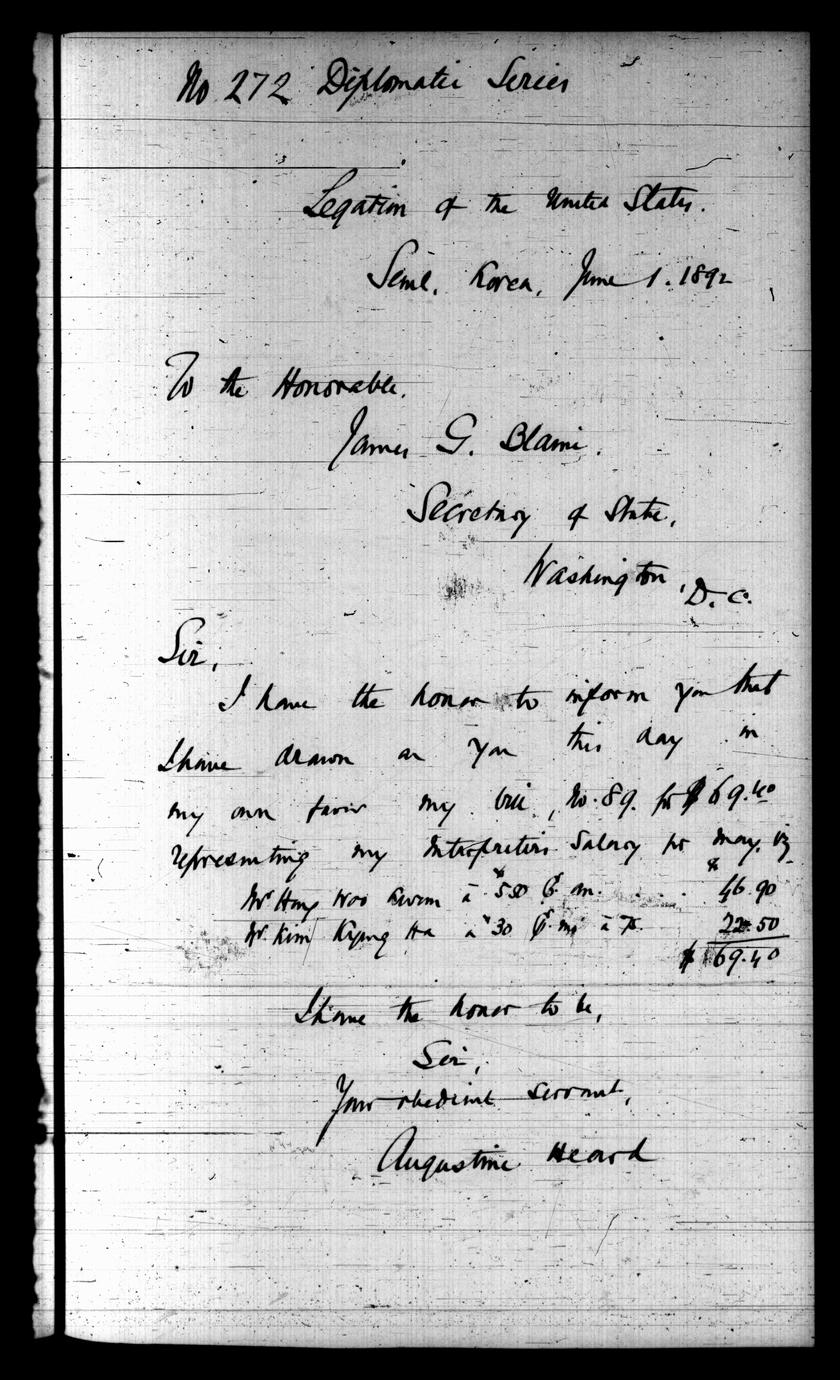 No 272 Diplomatic Series
Legation of the United States.
Seoul, Korea, June 1. 1892
To the Honorable.
James G. Blaine.
Secretary of State,
Washington, D. C.
Sir,
I have the honor to inform you that
I have drawn on you this day in
my own favor my bill, No. 89. for $69.40
representing my Interpreters Salary for May. viz
Mr Hong Woo Kwan à $550 p. an. . . . $ 46.90
Mr. Kim Kyeng Ha à $30 p. mo à 75. 22.50
$ 69.40
I have the honor to be,
Sir,
Your obedient servant,
Augustine Heard